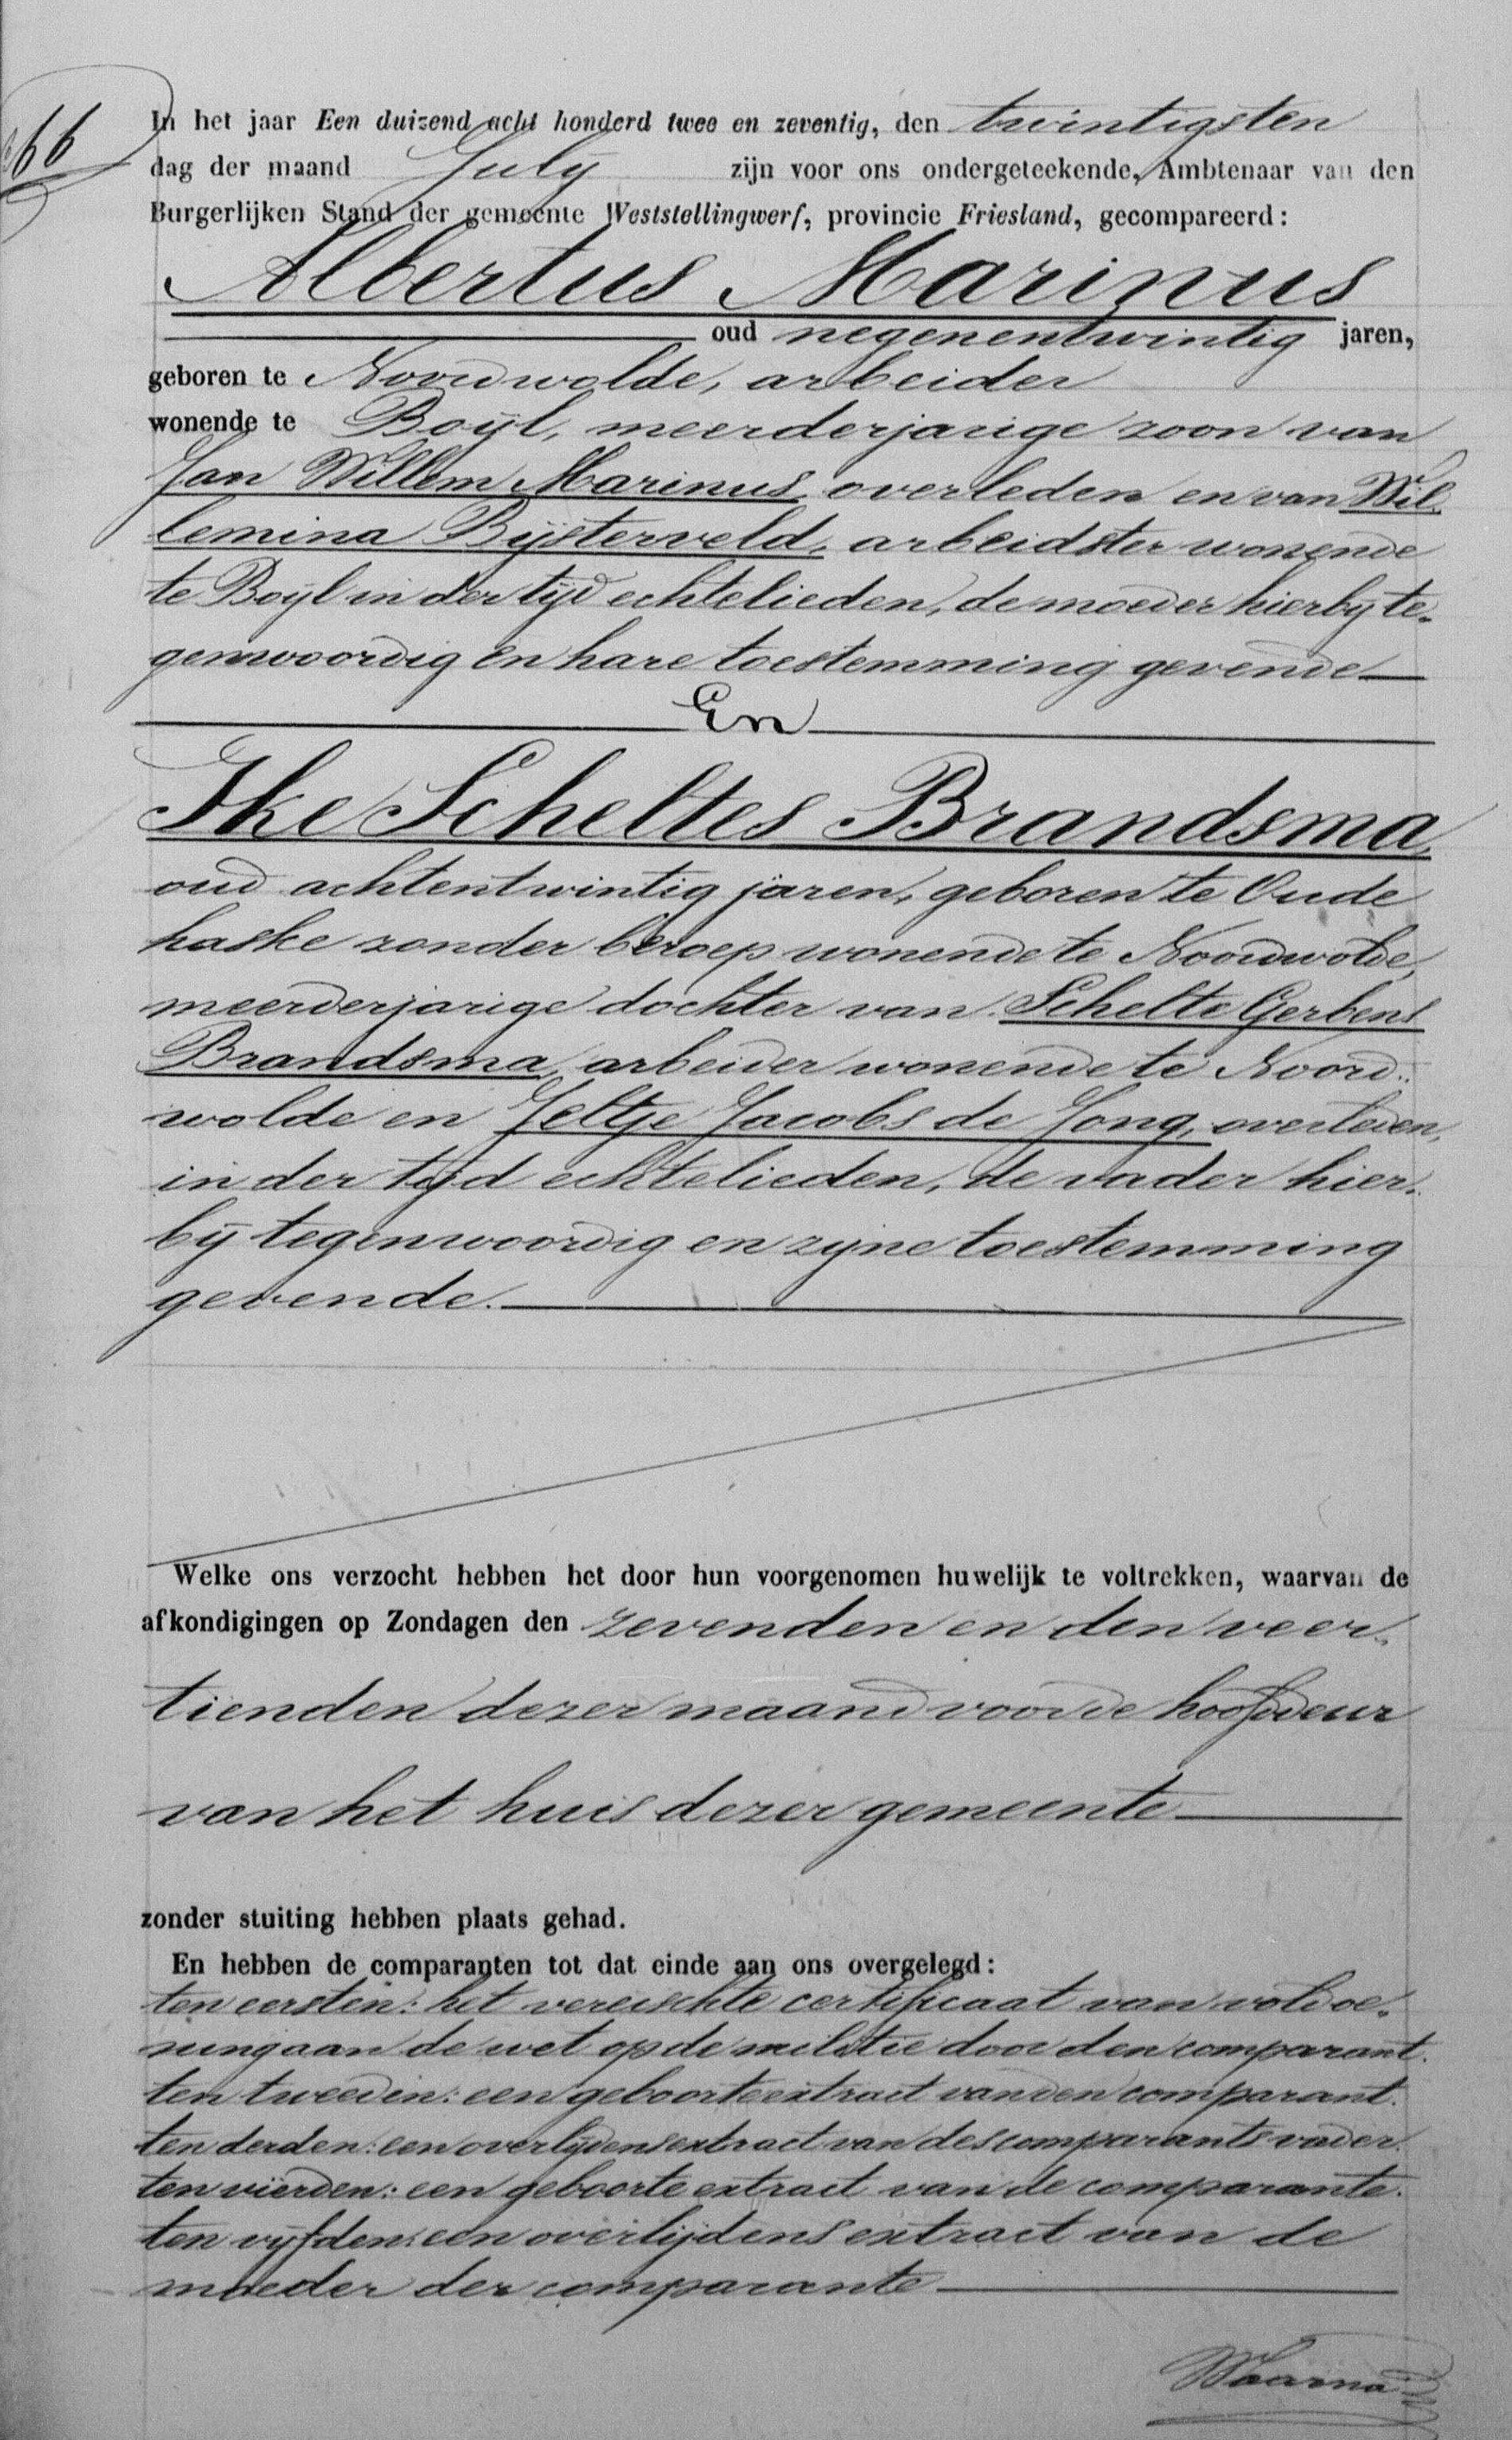 66
In het jaar Een duizend acht honderd twee en zeventig, den twintigsten
dag der maand July zijn voor ons ondergeteekende, Ambtenaar van den
Burgerlijken Stand der gemeente Weststellingwerf, provincie Friesland, gecompareerd:
Albertus Marinus
oud negenentwintig jaren,
geboren te Noordwolde, arbeider
wonende te Boijl, meerderjarige zoon van
Jan Willem Marinus, overleden en van Wil-
lemina Bijsterveld, arbeidster wonende
te Boijl in der tijd echtelieden, de moeder hierbij te-
genwoordig en hare toestemming gevende
En
Ike Scheltes Brandsma,
oud achtentwintig jaren, geboren te Oude
haske zonder beroep wonende te Noordwolde,
meerderjarige dochter van Schelte Gerbens
Brandsma, arbeider wonende te Noord-
wolde en Jeltje Jacobs de Jong, overleden,
in der tijd echtelieden, de vader hier-
bij tegenwoordig en zijne toestemming
gevende.
Welke ons verzocht hebben het door hun voorgenomen huwelijk te voltrekken, waarvan de
afkondigingen op Zondagen den zevenden en den veer-
tienden dezer maand voor de hoofddeur
van het huis dezer gemeente
zonder stuiting hebben plaats gehad.
En hebben de comparanten tot dat einde aan ons overgelegd:
ten eersten: het vereischte certificaat van voldoe-
ning aan de wet op de militie door den comparant.
ten tweeden: een geboorteextract van den comparant.
ten derden: een overlijdensextract van des comparants vader.
ten vierden: een geboorte extract van de comparante.
ten vijfden: een overlijdens extract van de
moeder der comparante
Waarna